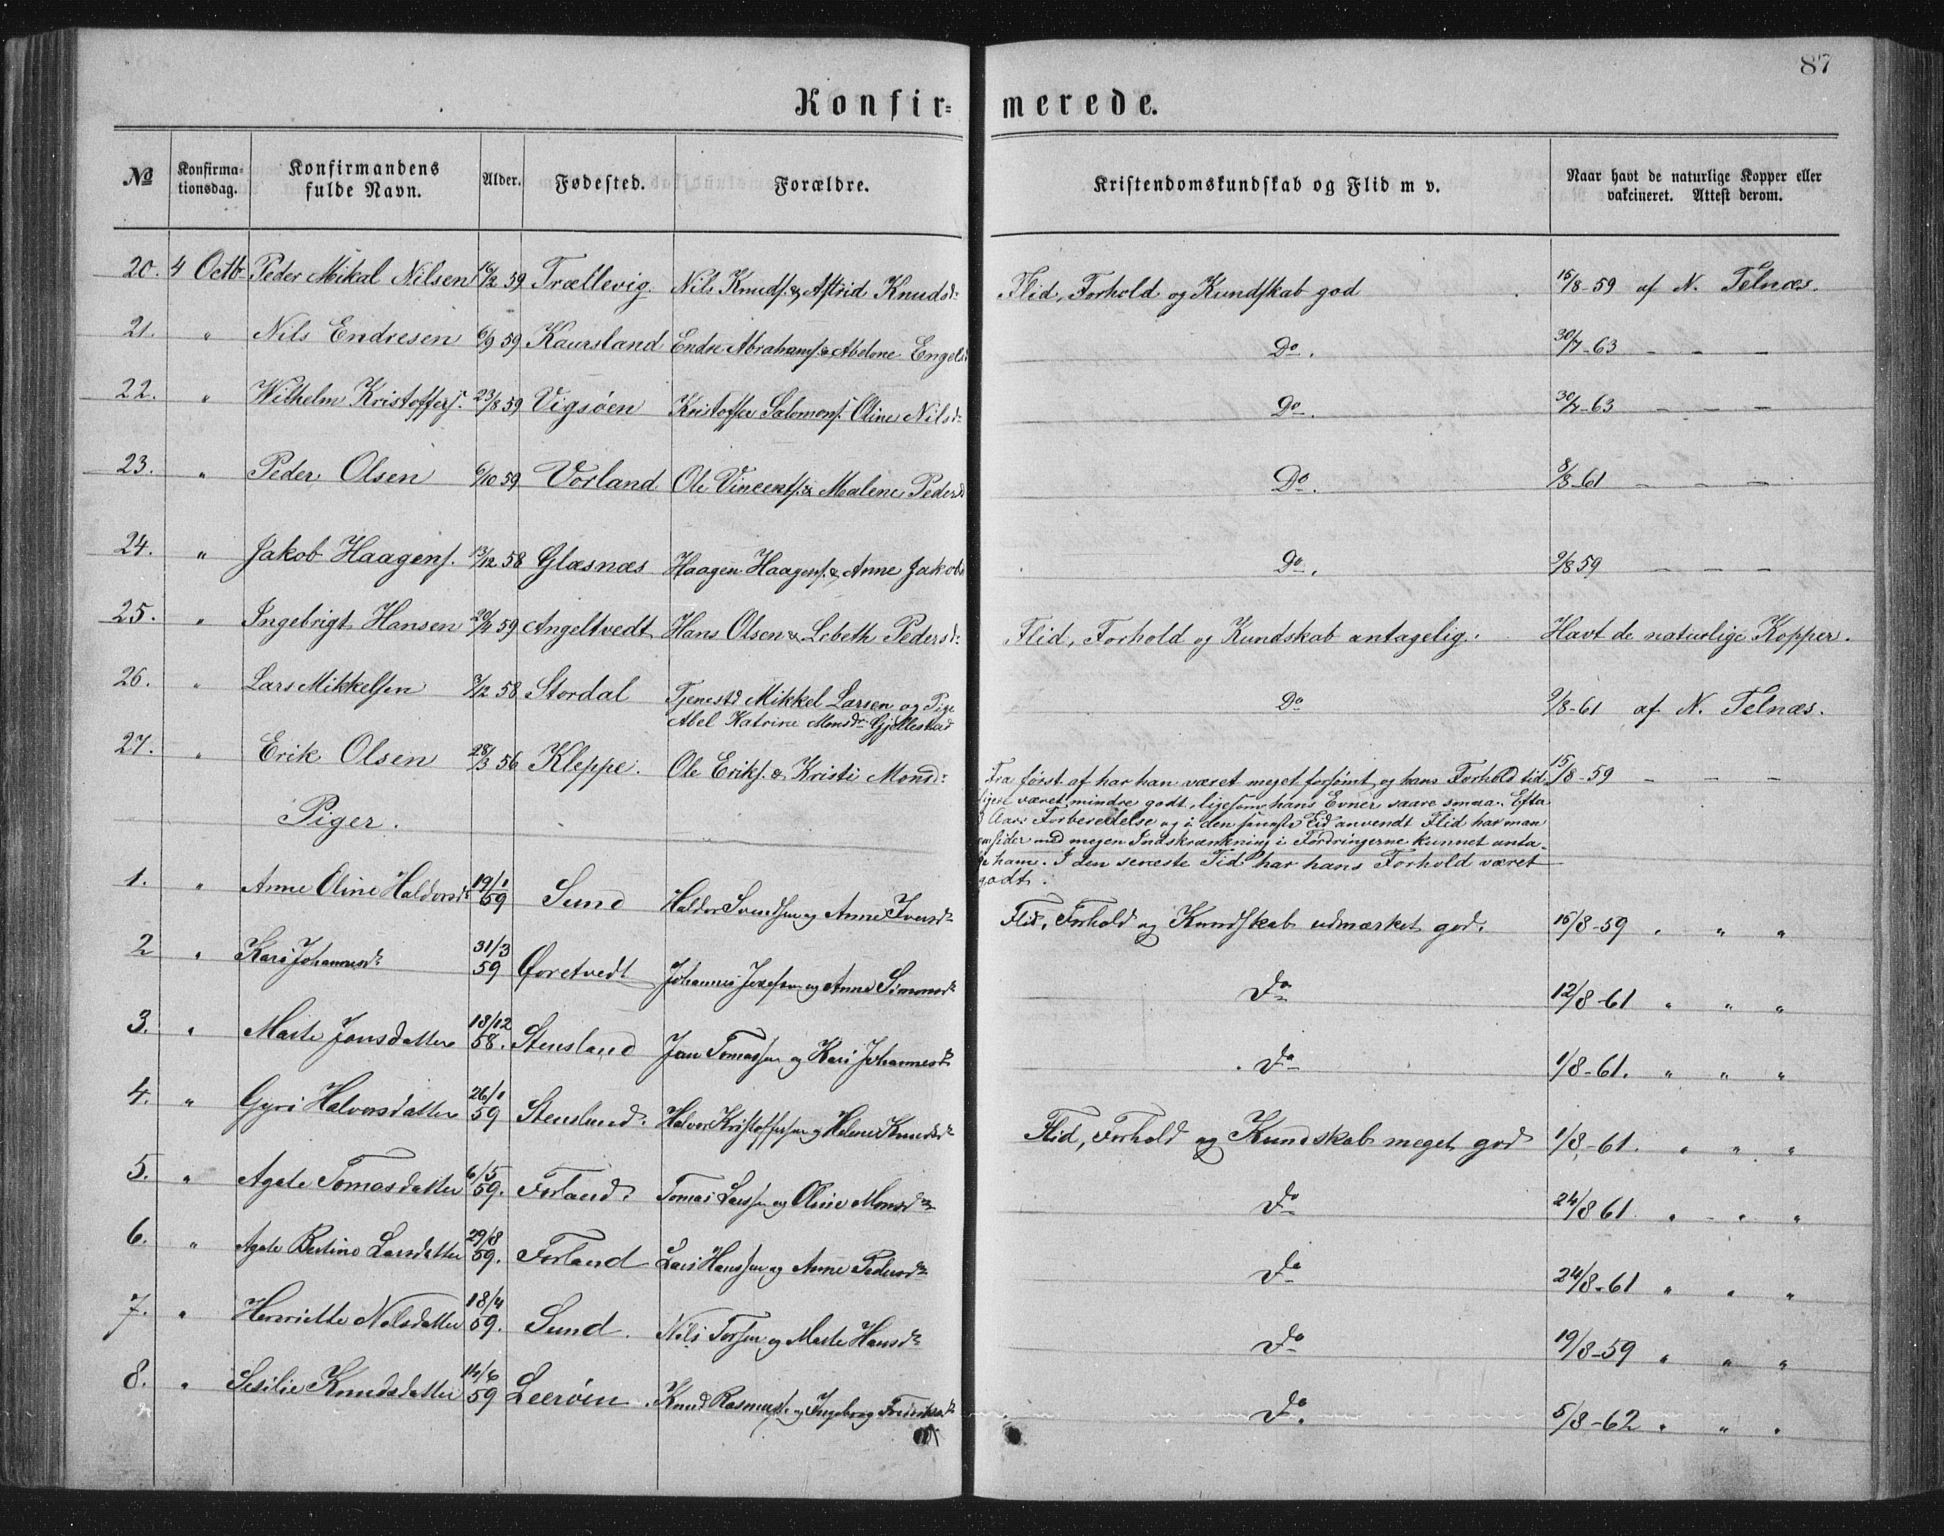 87
Konfir= merede.
№ Konfirma- tionsdag. Konfirmandens fulde Navn. Alder. Fødested. Forældre. Kristendomskundskab og Flid m v. Naar havt de naturlige Kopper eller vakcineret. Attest derom.
20. 4 Octb. Peder Mikal Nilsen 16/2 59 Trællevig. Nils Knuds. & Astrid Knudsd: Flid, Forhold og Kundskab god 15/8-59 af N. Telnæs.
21. " Nils Endresen 6/9 59 Kaursland Endre Abrahams. & Abelone Engels Do. 30/7-63 — — —
22. " Wilhelm Kristoffers. 23/8 59 Vigsøen Kristoffer Salomons. Oline Nilsd: Do. 30/7-63 — — —
23. " Peder Olsen 6/10 59 Vorland Ole Vincents. & Malene Peders Do. 8/8-61 — — —
24. " Jakob Haagens. 13/12 58 Glæsnæs Haagen Haagens. & Anne Jakobs Do. 9/8 59 — — —
25. " Ingebrigt Hansen 20/4 59 Angeltvedt Hans Olsen & Lebeth Pedersd: Flid, Forhold og Kundskab antagelig. Havt de naturlige Kopper.
26. " Lars Mikkelsen 3/12 58 Stordal Tjenestd Mikkel Larsen og Pige
Abel Katrine Monsd: Gjellestad Do 9/8-61 af N. Telnæs.
27. " Erik Olsen 28/3 56 Kleppe. Ole Eriks. & Kristi Monsd: Fra først af har han været meget forsømt og hans Forhold tid- 15/8-59 — — —
ligere været mindre godt, ligesom hans Evner saare smaa. Efter
Aars Forberedelse og i den seneste Tid anvendt Flid har man
omsider med megen Indskrænkning i Fordringerne kunnet anta-
ge ham. I den seneste Tid har hans Forhold været
godt.
Piger.
1. " Anne Oline Haldorsd: 19/1 59 Sund Haldor Svendsen og Anne Iversd: Flid, Forhold og Kundskab udmærket god. 15/8-59 " " "
2 " Kari Johannesd: 31/3 59 Øvretvedt Johannes Josefsen og Anna Simonsd: Do 12/8-61 " " "
3. " Marte Jonsdatter 13/12 58. Stensland Jon Tomassen og Kari Johannesd: Do 1/8-61. " " "
4. " Gyri Halvorsdatter 26/1 59 Stensland. Halvor Kristoffersen og Helene Knudsd: Flid, Forhold og Kundskab meget god 1/8-61. " " "
5. " Agate Tomasdatter 6/5 59. Forland. Tomas Larssen og Oline Monsd: Do 24/8 61. " " "
6. " Agate Bertine Larsdatter 29/8 59. Forland Lars Hanssen og Anne Pedersd: Do 24/8-61 " " "
7. " Henriette Nilsdatter 18/4 59. Sund. Nils Torsen og Marte Hansd: Do 19/8-59 " " "
8. " Sesilie Knudsdatter 14/6 59 Leerøen. Knud Rasmussen og Ingeborg Fredriksd: Do. 5/8-62 " " "